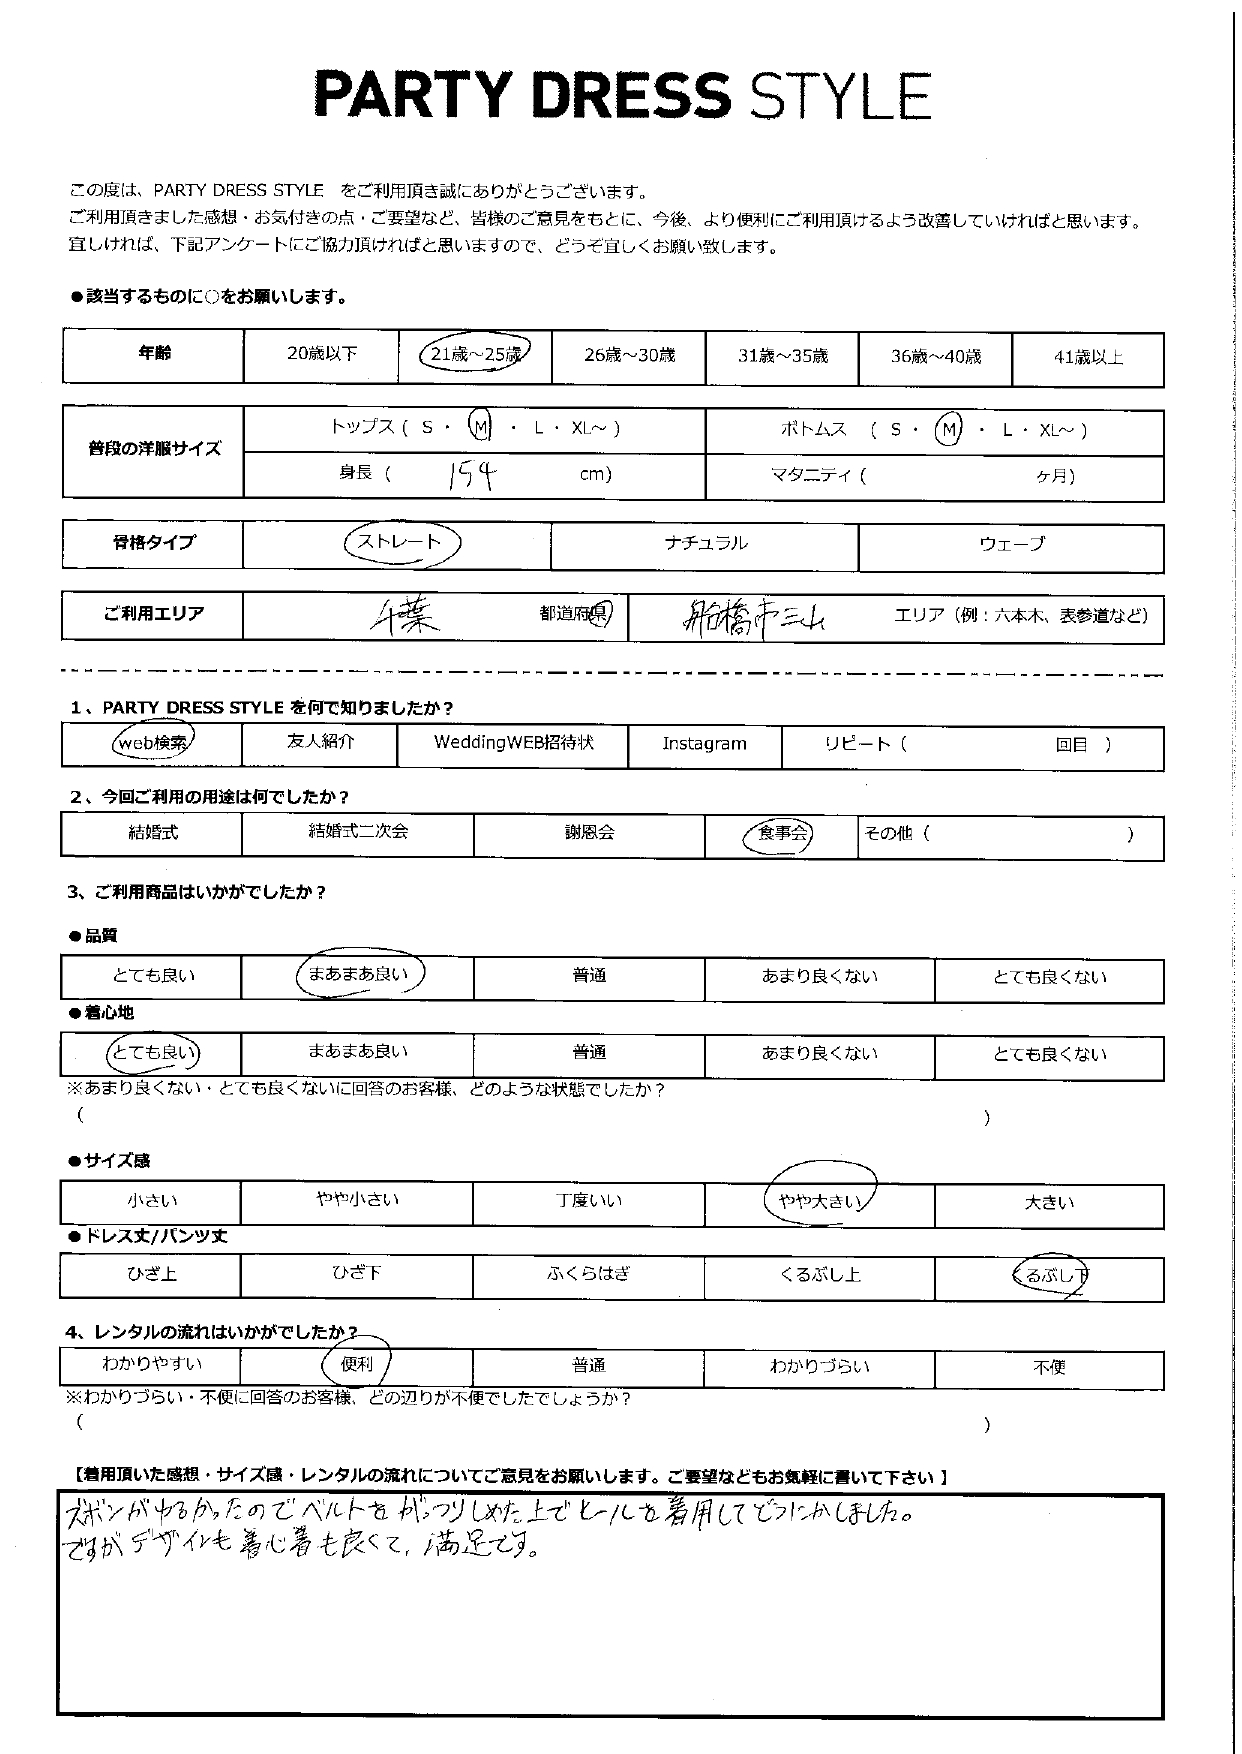 PARTY DRESS STYLE
この度は、PARTY DRESS STYLE をご利用頂き誠にありがとうございます。
ご利用頂きました感想・お気付きの点・ご要望など、皆様のご意見をもとに、今後、より便利にご利用頂けるよう改善していければと思います。
宜しければ、下記アンケートにご協力頂ければと思いますので、どうぞ宜しくお願い致します。
●該当するものに○をお願いします。
年齢 20歳以下 21歳～25歳 26歳～30歳 31歳～35歳 36歳～40歳 41歳以上
普段の洋服サイズ トップス ( S ・ M ・ L ・ XL～ ) ボトムス ( S ・ M ・ L ・ XL～ )
身長 ( 154 cm) マタニティ ( ヶ月)
骨格タイプ ストレート ナチュラル ウェーブ
ご利用エリア 千葉 都道府県 船橋市三山 エリア（例：六本木、表参道など）
1、PARTY DRESS STYLE を何で知りましたか？
web検索 友人紹介 WeddingWEB招待状 Instagram リピート ( 回目 )
2、今回ご利用の用途は何でしたか？
結婚式 結婚式二次会 謝恩会 食事会 その他 ( )
3、ご利用商品はいかがでしたか？
●品質
とても良い まあまあ良い 普通 あまり良くない とても良くない
●着心地
とても良い まあまあ良い 普通 あまり良くない とても良くない
※あまり良くない・とても良くないに回答のお客様、どのような状態でしたか？
( )
●サイズ感
小さい やや小さい 丁度いい やや大きい 大きい
●ドレス丈/パンツ丈
ひざ上 ひざ下 ふくらはぎ くるぶし上 くるぶし下
4、レンタルの流れはいかがでしたか？
わかりやすい 便利 普通 わかりづらい 不便
※わかりづらい・不便に回答のお客様、どの辺りが不便でしたでしょうか？
( )
【着用頂いた感想・サイズ感・レンタルの流れについてご意見をお願いします。ご要望などもお気軽に書いて下さい 】
ズボンがゆるかったのでベルトをがっつりしめた上でヒールを着用してどうにかしました。
ですがデザインも着心着も良くて、満足です。